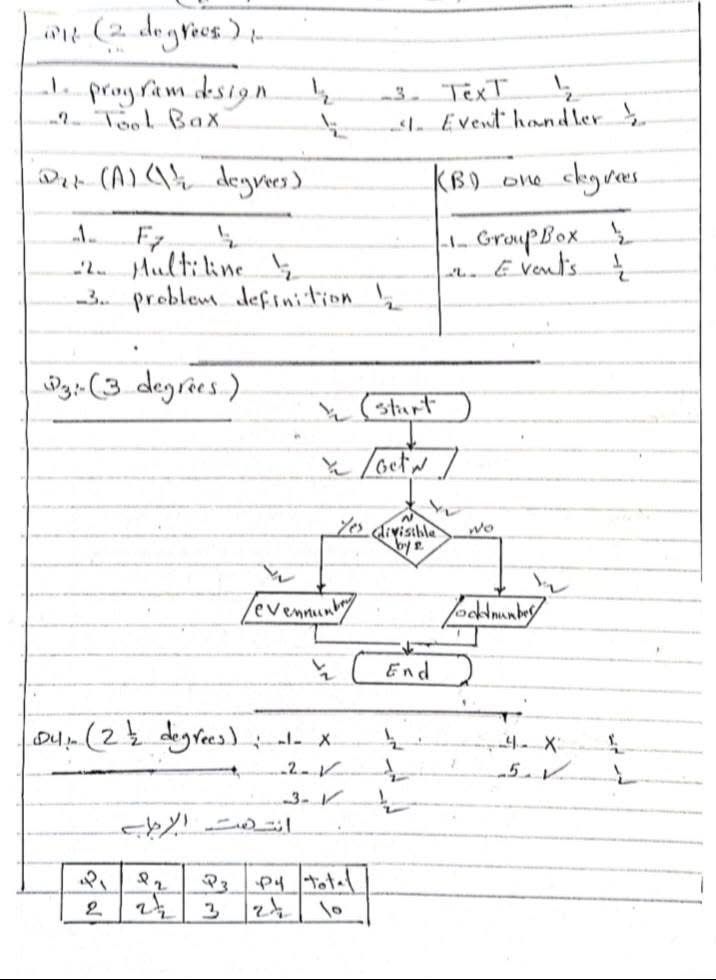 Q1:- (2 degrees):-
-1- program design ½ -3- TexT ½
-2- Tool Box ½ -4- Event handler ½
Q2:- (A) (1½ degrees)
-1- F7 ½
-2- Multiline ½
-3- problem definition ½
(B) one degrees
-1- GroupBox ½
-2- Events ½
Q3:- (3 degrees)
½ Start
½ Get N
N ½
Yes divisible No
by 2
½ ½
evennumber oddnumber
½ End
Q4:- (2 ½ degrees): -1- X ½ -4- X ½
-2- ✓ ½ -5- ✓ ½
-3- ✓ ½
انتهت الإجابة
Q1 Q2 Q3 Q4 Total
2 2½ 3 2½ 10